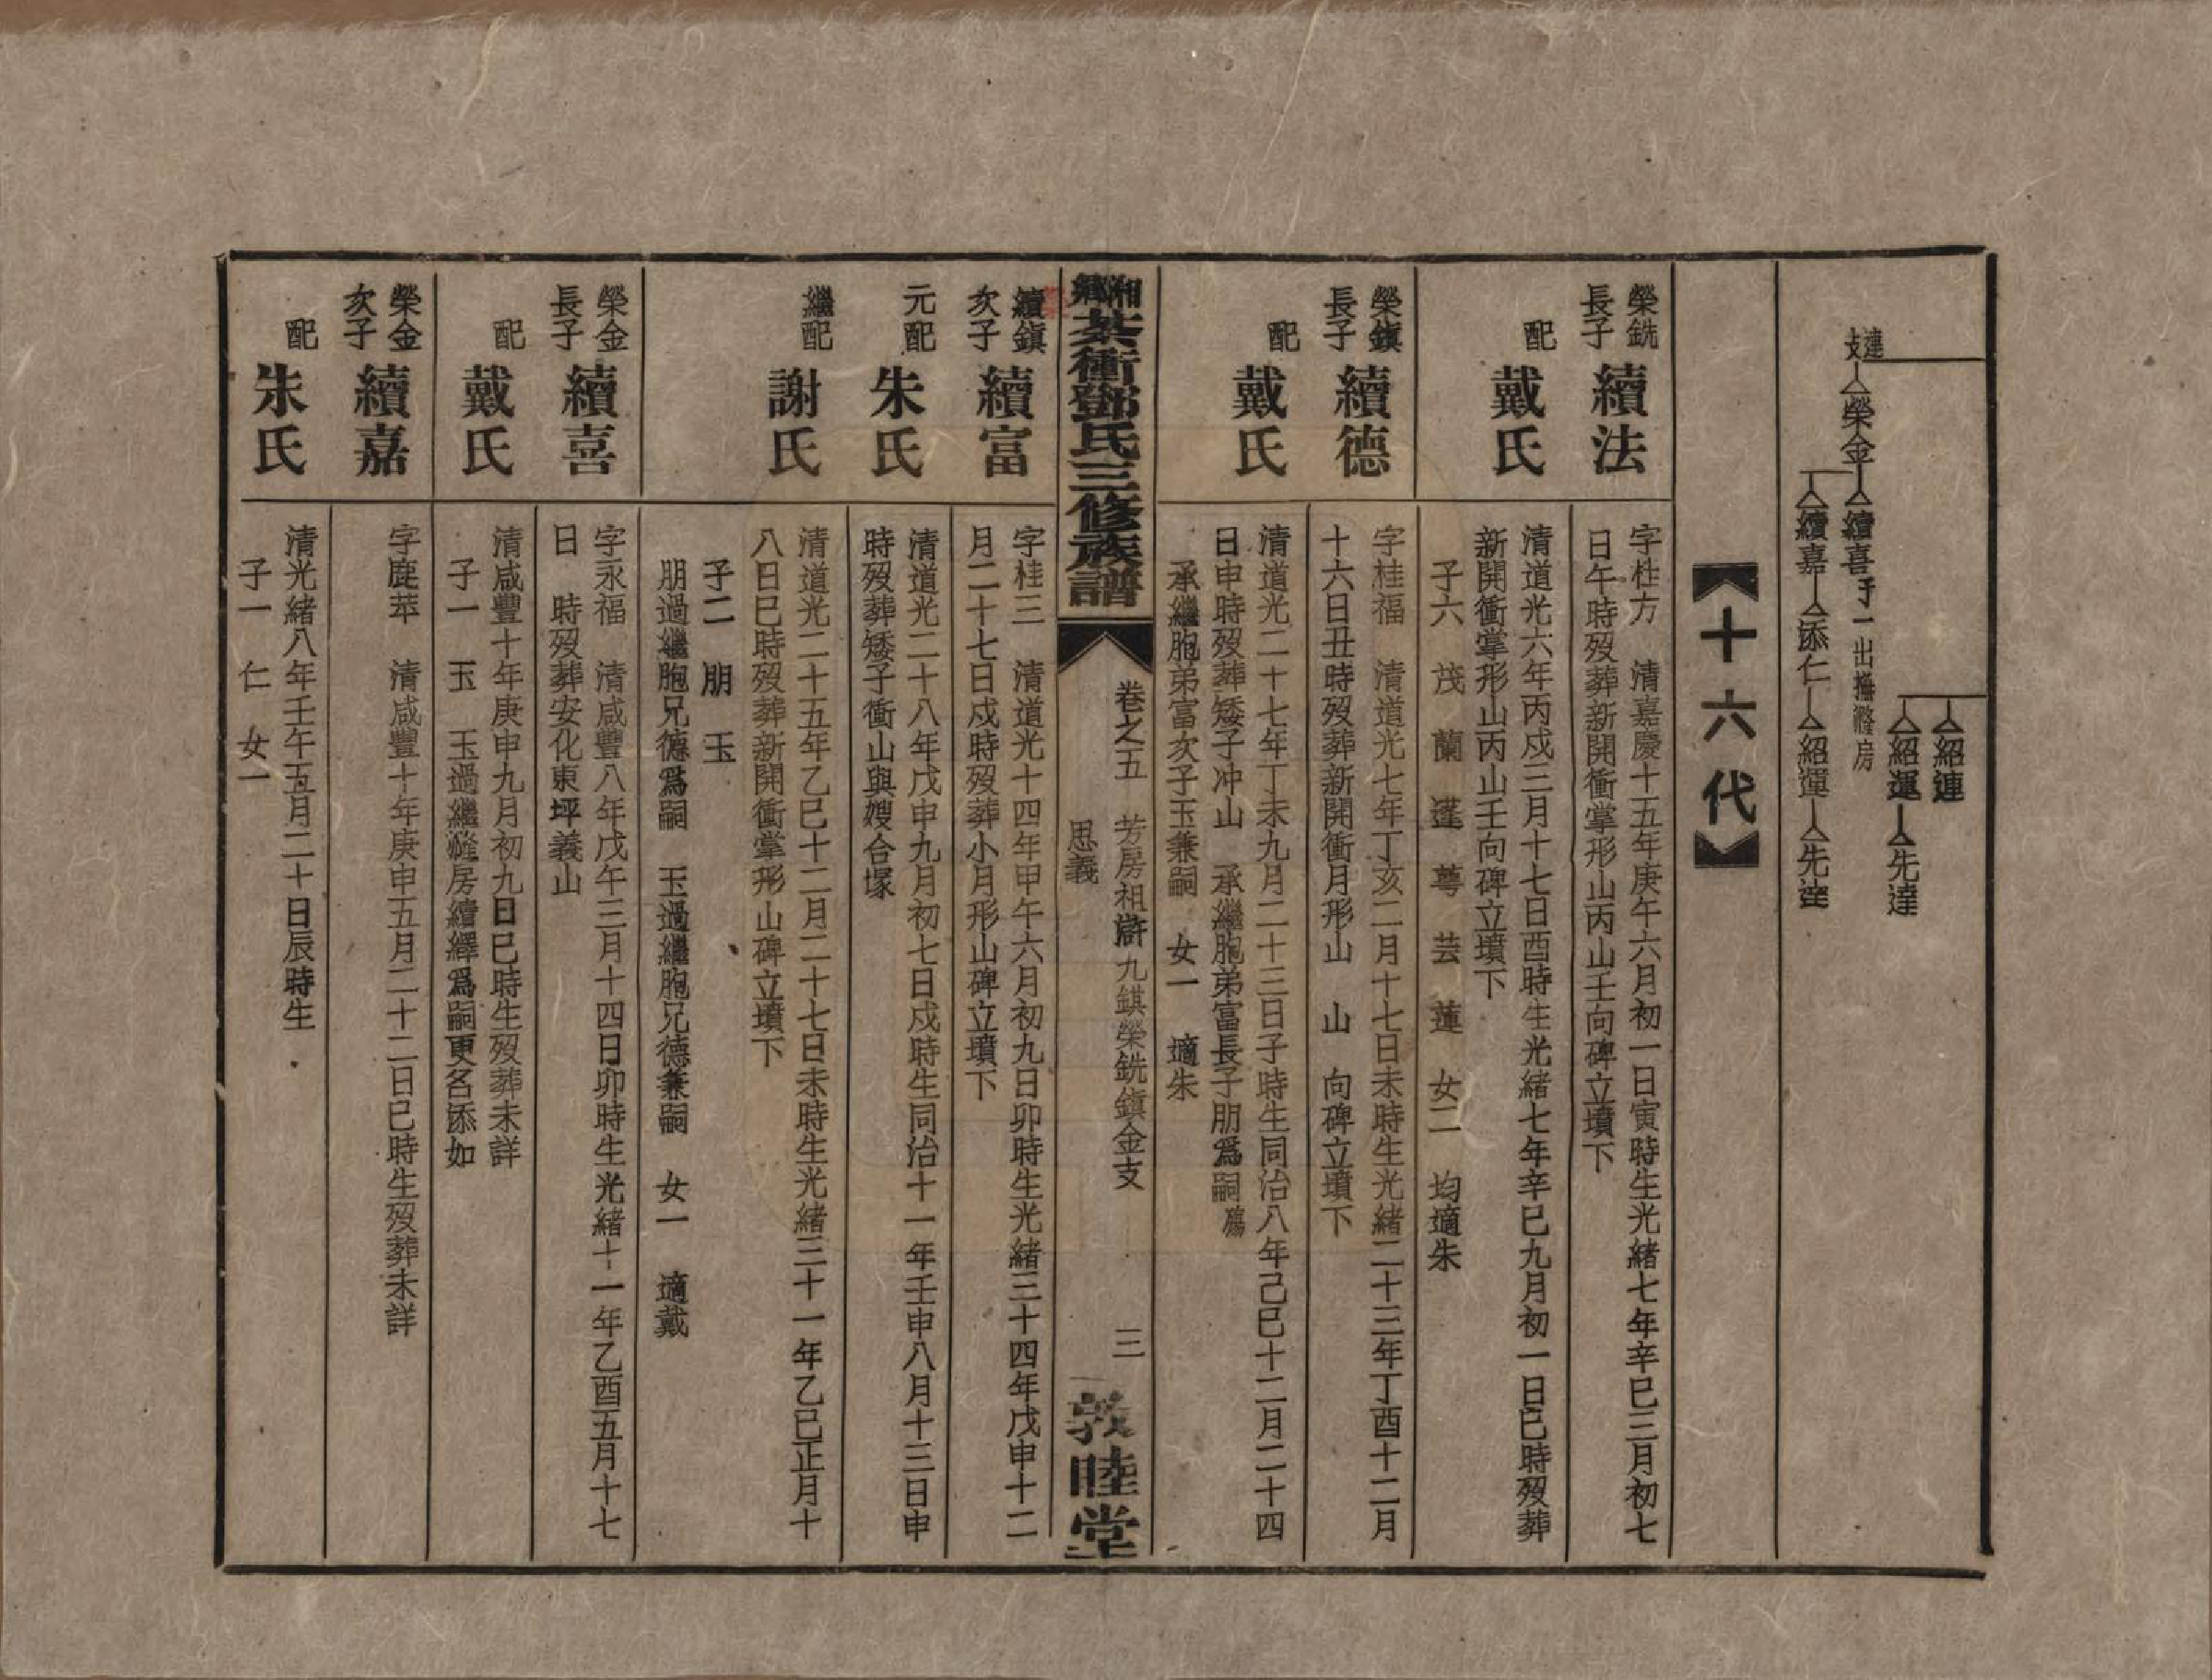 紹連
紹運 先達
連支 榮金 續喜 子一出撫瀣房
續嘉 添仁 紹運 先達
十六代
榮銑長子 續法
字桂方 清嘉慶十五年庚午六月初一日寅時生光緒七年辛巳三月初七
日午時歿葬新開衝掌形山丙山壬向碑立墳下
配 戴氏
清道光六年丙戍三月十七日酉時生光緒七年辛巳九月初一日巳時歿葬
新開衝掌形山丙山壬向碑立墳下
子六 茂 蘭 蓬 萼 芸 蓮 女二 均適朱
榮鎮長子 續德
字桂福 清道光七年丁亥二月十七日未時生光緒二十三年丁酉十二月
十六日丑時歿葬新開衝月形山 山 向碑立墳下
配 戴氏
清道光二十七年丁未九月二十三日子時生同治八年己巳十二月二十四
日申時歿葬矮子冲山 承繼胞弟富長子朋爲嗣殤
承繼胞弟富次子玉兼嗣 女一 適朱
湘鄉茶衝鄧氏三修族譜
卷之五 芳房祖滸九鋕榮銑鎮金支 三
思義
敦睦堂
續鎮次子 續富
字桂三 清道光十四年甲午六月初九日卯時生光緒三十四年戊申十二
月二十七日戍時歿葬小月形山碑立墳下
元配 朱氏
清道光二十八年戊申九月初七日戍時生同治十一年壬申八月十三日申
時歿葬矮子衝山與嫂合塚
繼配 謝氏
清道光二十五年乙巳十二月二十七日未時生光緒三十一年乙巳正月十
八日巳時歿葬新開衝掌形山碑立墳下
子二 朋 玉
朋過繼胞兄德爲嗣 玉過繼胞兄德兼嗣 女一 適戴
榮金長子 續喜
字永福 清咸豐八年戊午三月十四日卯時生光緒十一年乙酉五月十七
日 時歿葬安化東坪義山
配 戴氏
清咸豐十年庚申九月初九日巳時生歿葬未詳
子一 玉 玉過繼瀣房續繹爲嗣更名添如
榮金次子 續嘉
字鹿苹 清咸豐十年庚申五月二十二日巳時生歿葬未詳
配 朱氏
清光緒八年壬午五月二十日辰時生
子一 仁 女一